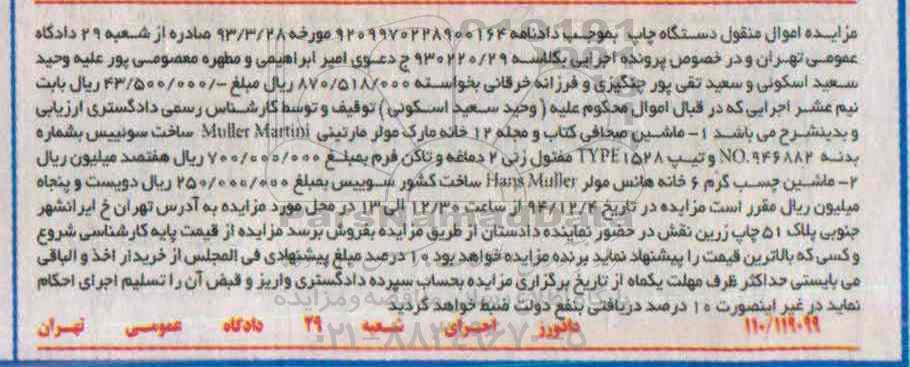 مزایده اموال منقول دستگاه چاپ بموجب دادنامه ۹۲۰۹۹۷۰۲۲۸۹۰۰۱۶۴ مورخه ۹۳/۳/۲۸ صادره از شعبه ۲۹ دادگاه
عمومی تهران و در خصوص پرونده اجرایی بکلاسه ۹۳۰۲۲۰/۲۹ ج دعوی امیر ابراهیمی و مطهره معصومی پور علیه وحید
سعید اسکونی و سعید تقی پور چنگیزی و فرزانه خرقانی بخواسته ۸۷۰/۵۱۸/۰۰۰ ریال مبلغ -/۴۳/۵۰۰/۰۰۰ ریال بابت
نیم عشر اجرایی که در قبال اموال محکوم علیه ( وحید سعید اسکونی ) توقیف و توسط کارشناس رسمی دادگستری ارزیابی
و بدینشرح می باشد ۱- ماشین صحافی کتاب و مجله ۱۲ خانه مارک مولر مارتینی Muller Martini ساخت سوئییس بشماره
بدنه NO.۹۴۶۸۸۲ و تیپ TYPE۱۵۲۸ مفتول زنی ۲ دماغه و تاکن فرم بمبلغ ۷۰۰/۰۰۰/۰۰۰ ریال هفتصد میلیون ریال
۲- ماشین چسب گرم ۶ خانه هانس مولر Hans Muller ساخت کشور سوییس بمبلغ ۲۵۰/۰۰۰/۰۰۰ ریال دویست و پنجاه
میلیون ریال مقرر است مزایده در تاریخ ۹۴/۱۲/۴ از ساعت ۱۲/۳۰ الی ۱۳ در محل مورد مزایده به آدرس تهران خ ایرانشهر
جنوبی پلاک ۵۱ چاپ زرین نقش در حضور نماینده دادستان از طریق مزایده بفروش برسد مزایده از قیمت پایه کارشناسی شروع
و کسی که بالاترین قیمت را پیشنهاد نماید برنده مزایده خواهد بود ۱۰ درصد مبلغ پیشنهادی فی المجلس از خریدار اخذ و الباقی
می بایستی حداکثر ظرف مهلت یکماه از تاریخ برگزاری مزایده بحساب سپرده دادگستری واریز و قبض آن را تسلیم اجرای احکام
نماید در غیر اینصورت ۱۰ درصد دریافتی بنفع دولت ضبط خواهد گردید
۱۱۰/۱۱۹۰۹۹ دادورز اجرای شعبه ۲۹ دادگاه عمومی تهران
ParsNamadData